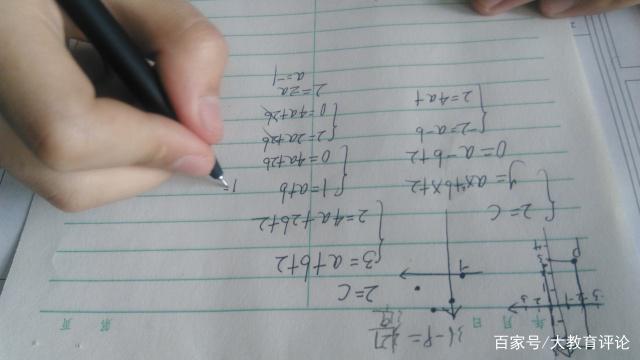 年 月 日 第 页
2=c
y=ax²+bx+2
0=a-b+2
-2=a-b
2=4a+
2=c
3=a+b+2
2=4a+2b+2
1=a+b
0=4a+2b
2=2a+2b
0=4a+2b
2=2a
a=-1
百家号/大教育评论